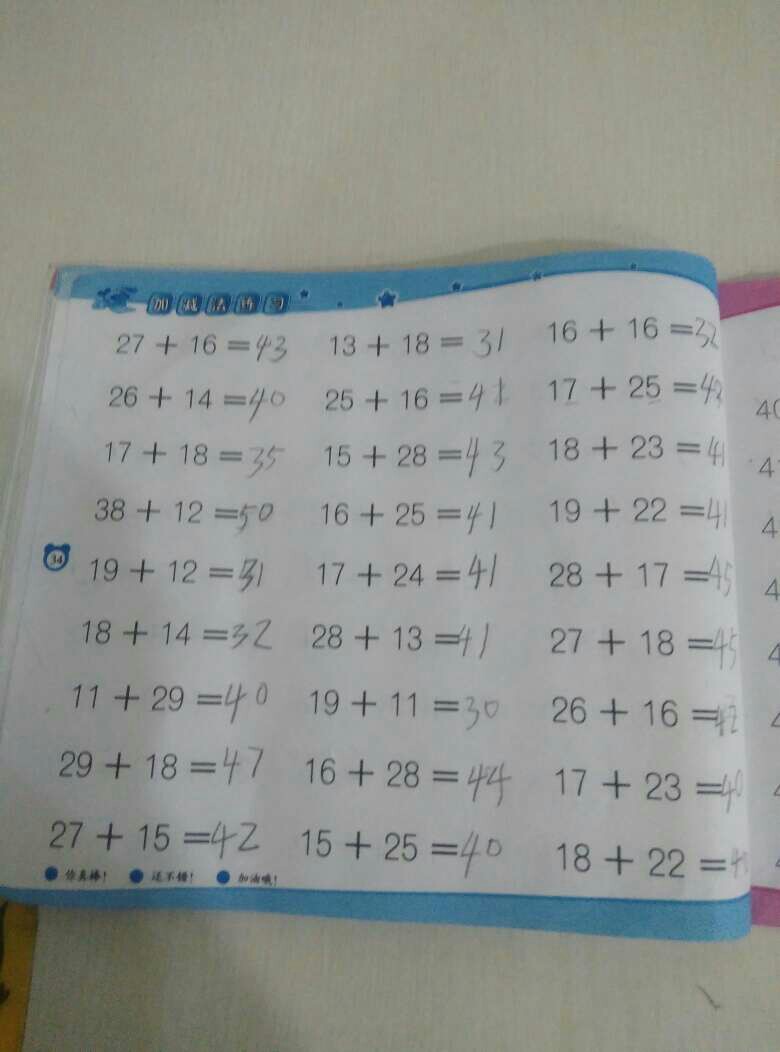 加减法练习
27 + 16 = 43 13 + 18 = 31 16 + 16 = 32
26 + 14 = 40 25 + 16 = 41 17 + 25 = 42
17 + 18 = 35 15 + 28 = 43 18 + 23 = 41
38 + 12 = 50 16 + 25 = 41 19 + 22 = 41
34
19 + 12 = 31 17 + 24 = 41 28 + 17 = 45
18 + 14 = 32 28 + 13 = 41 27 + 18 = 45
11 + 29 = 40 19 + 11 = 30 26 + 16 = 42
29 + 18 = 47 16 + 28 = 44 17 + 23 = 40
27 + 15 = 42 15 + 25 = 40 18 + 22 =
你真棒! 还不错! 加油哦!